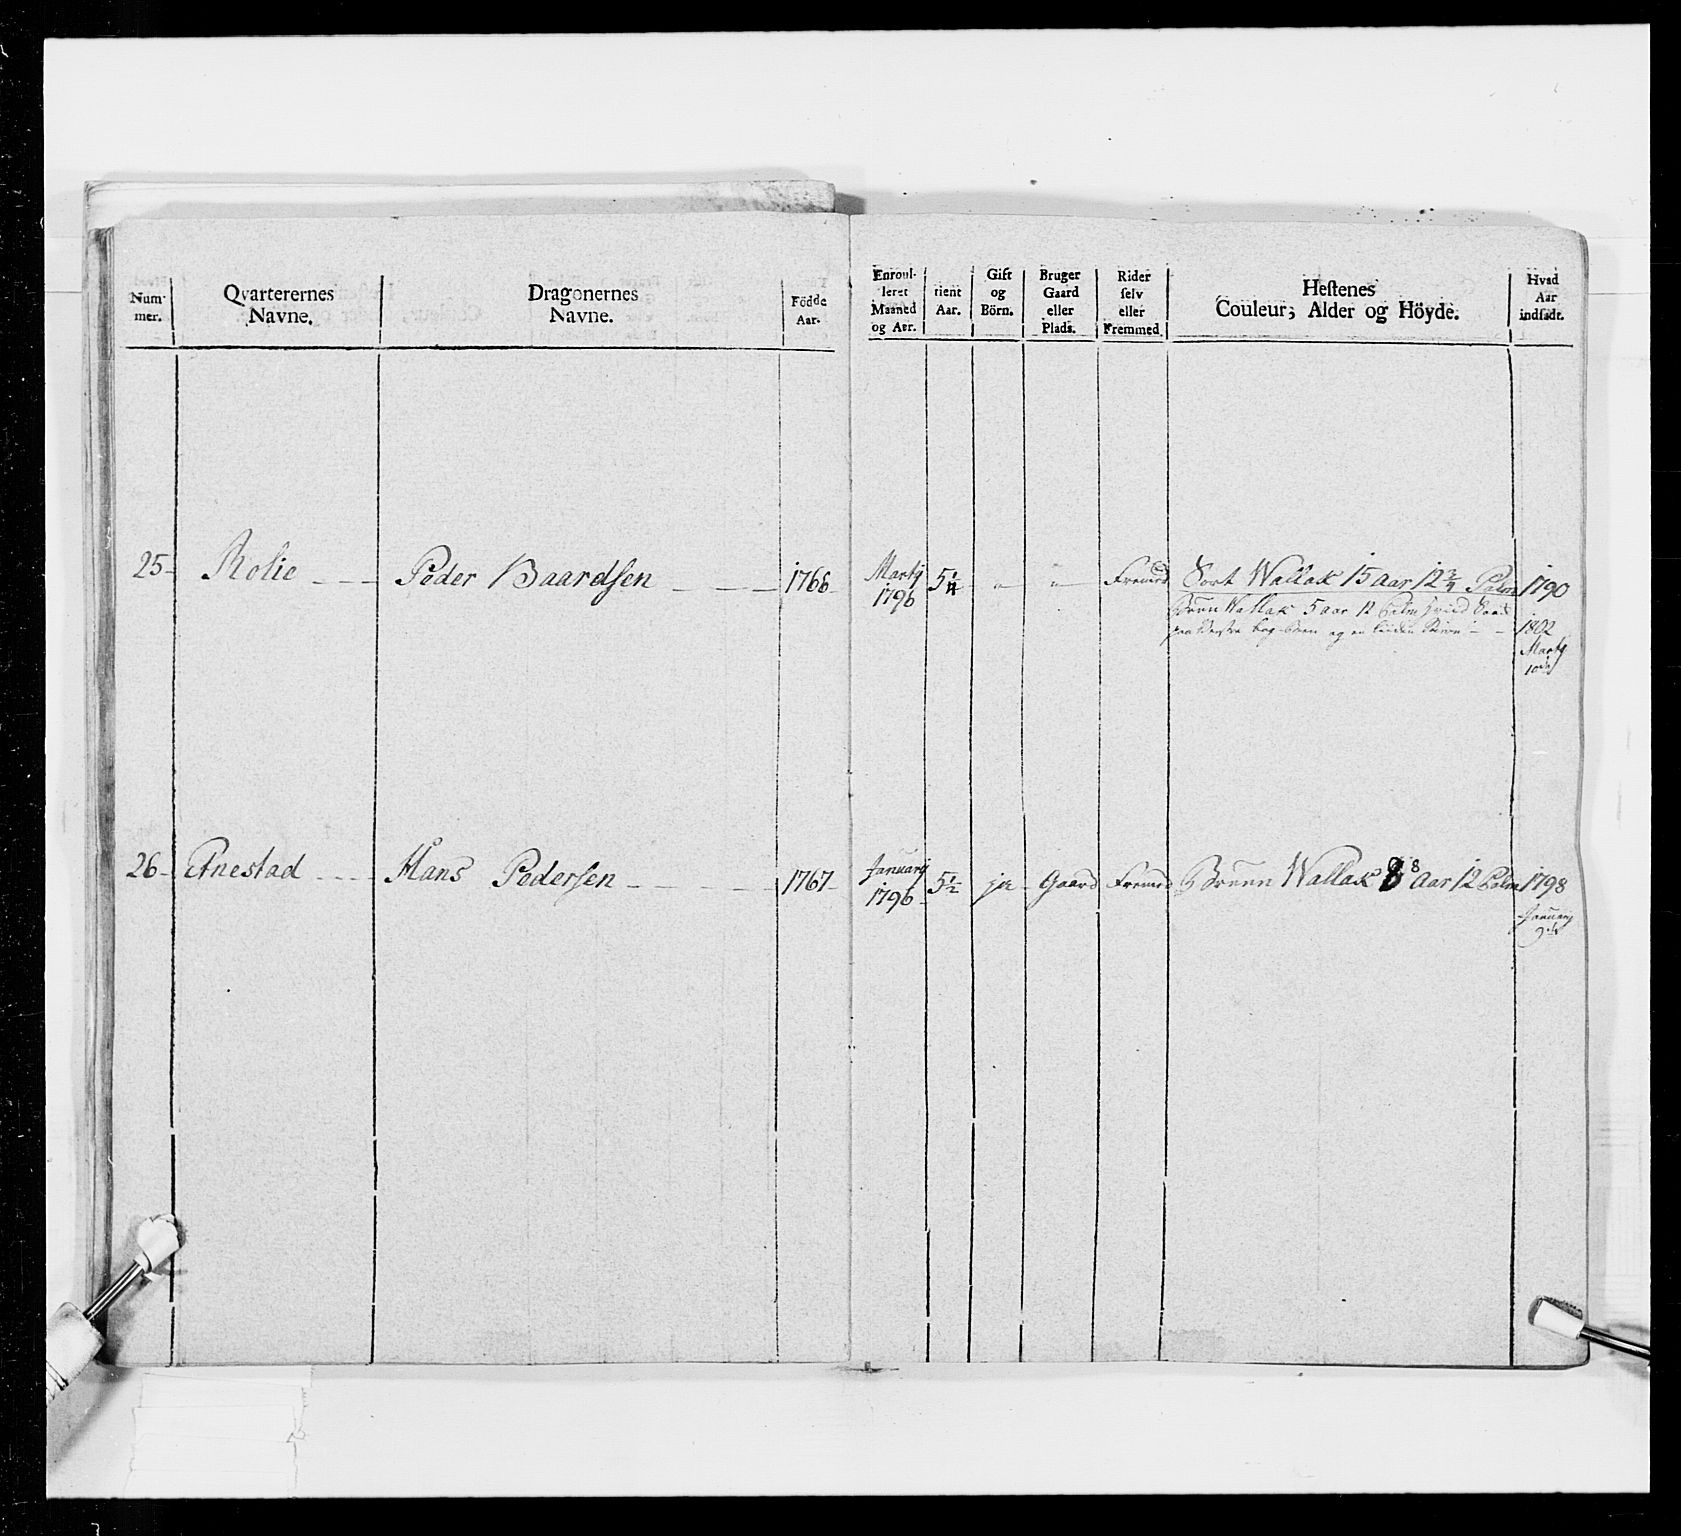 Num-
mer.
Qvarterernes
Navne.
Dragonernes
Navne.
Födde
Aar.
Enroul-
leret
Maaned
og Aar.
tient
Aar.
Gift
og
Börn.
Bruger
Gaard
eller
Plads.
Rider
selv
eller
Fremmed.
Hestenes
Couleur, Alder og Höyde.
Hvad
Aar
indsadt.
25 - Rolie - - - Peder Baardsen - - - - 1766 Martij 5 1/4 - - Fremed Sort Wallak 15 aar 12 3/4 Palm 1790
1796
Brun Wallak 5 aar 12 Palm
og en liden 1802
Martij
10de
26 - Enestad - - - Hans Pedersen - - - - 1767 - Januarij 5 1/2 ja - Gaard Fremed Bruun Wallak 8 8 aar 12 Palm 1798
1796 -
Januarij
9de